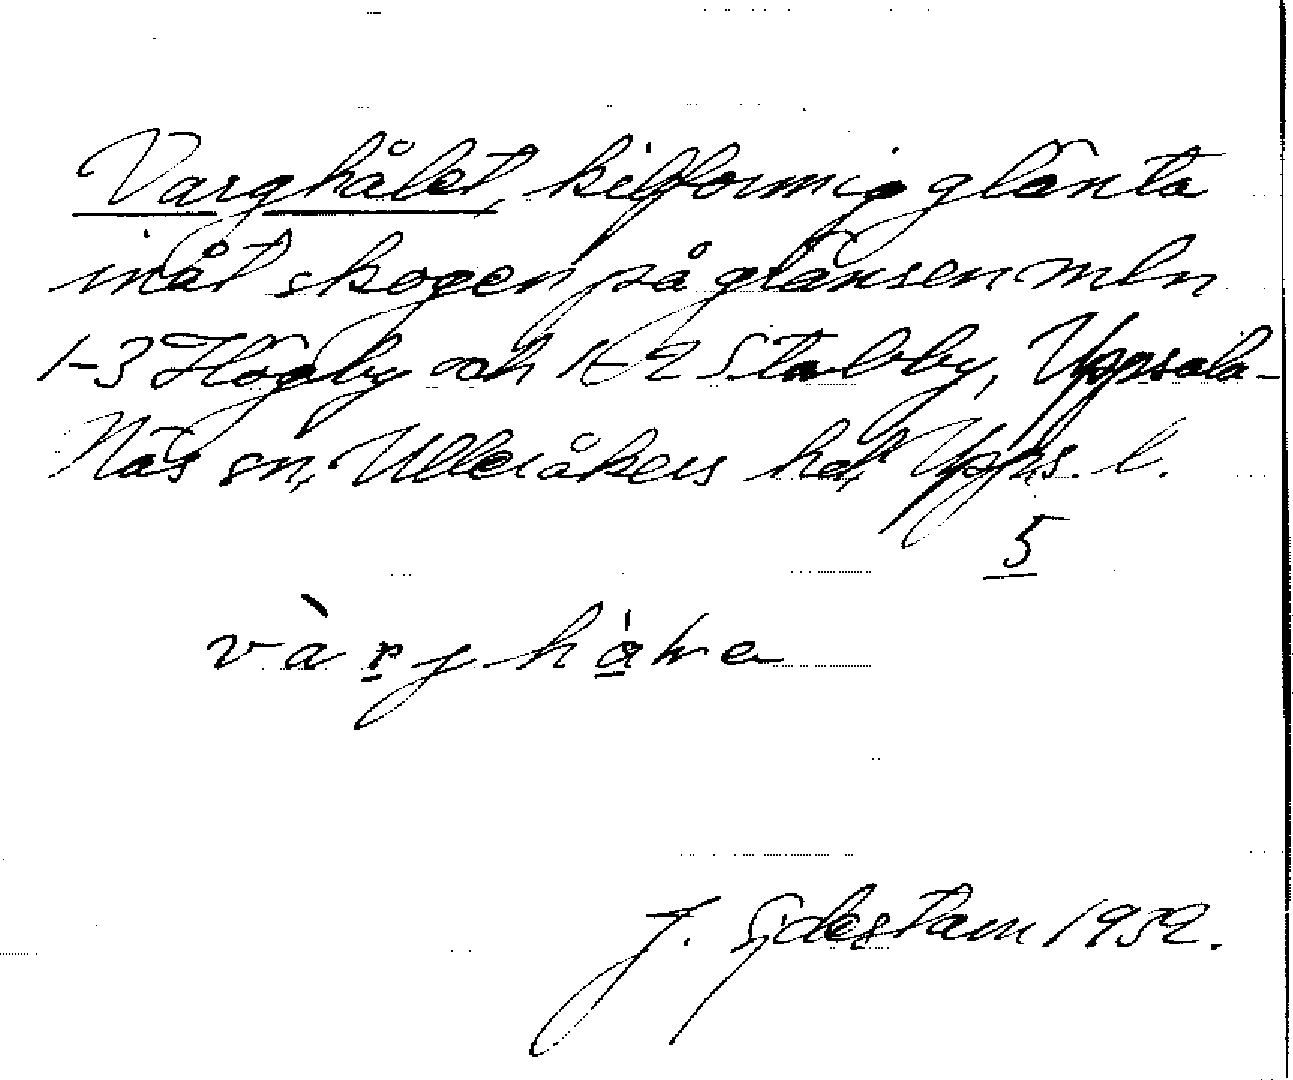 Varghålet, kilformig glänta
inåt skogen på gränsen mln
1-3 Högby och 1-2 Stabby, Uppsala-
Näs sn, Ulleråkers hd, Upps. l.
5
J. Sjdestam 1952.